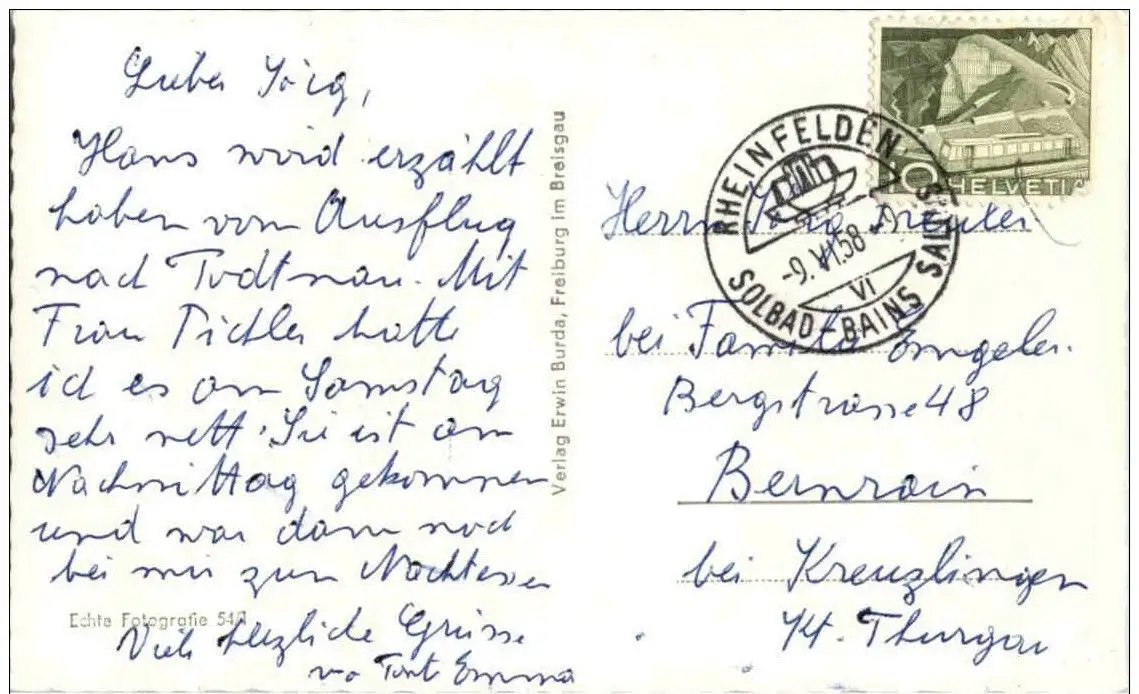 Lieber Jörg,
Hans wird erzählt
haben vom Ausflug
nach Todtnau. Mit
Frau Pichler hatte
ich es am Samstag
sehr nett. Sie ist am
Nachmittag gekommen
und war dann noch
bei mir zum Nachtessen
Echte Fotografie 54/1
Viele herzliche Grüsse
vo Tant Emma
Verlag Erwin Burda, Freiburg im Breisgau
10 HELVETIA
RHEINFELDEN
-9.VI.58
VI
SOLBAD-BAINS SALINS
Herrn Jörg
bei Familie Engeler.
Bergstrasse 48
Bernrain
bei Kreuzlingen
Kt. Thurgau